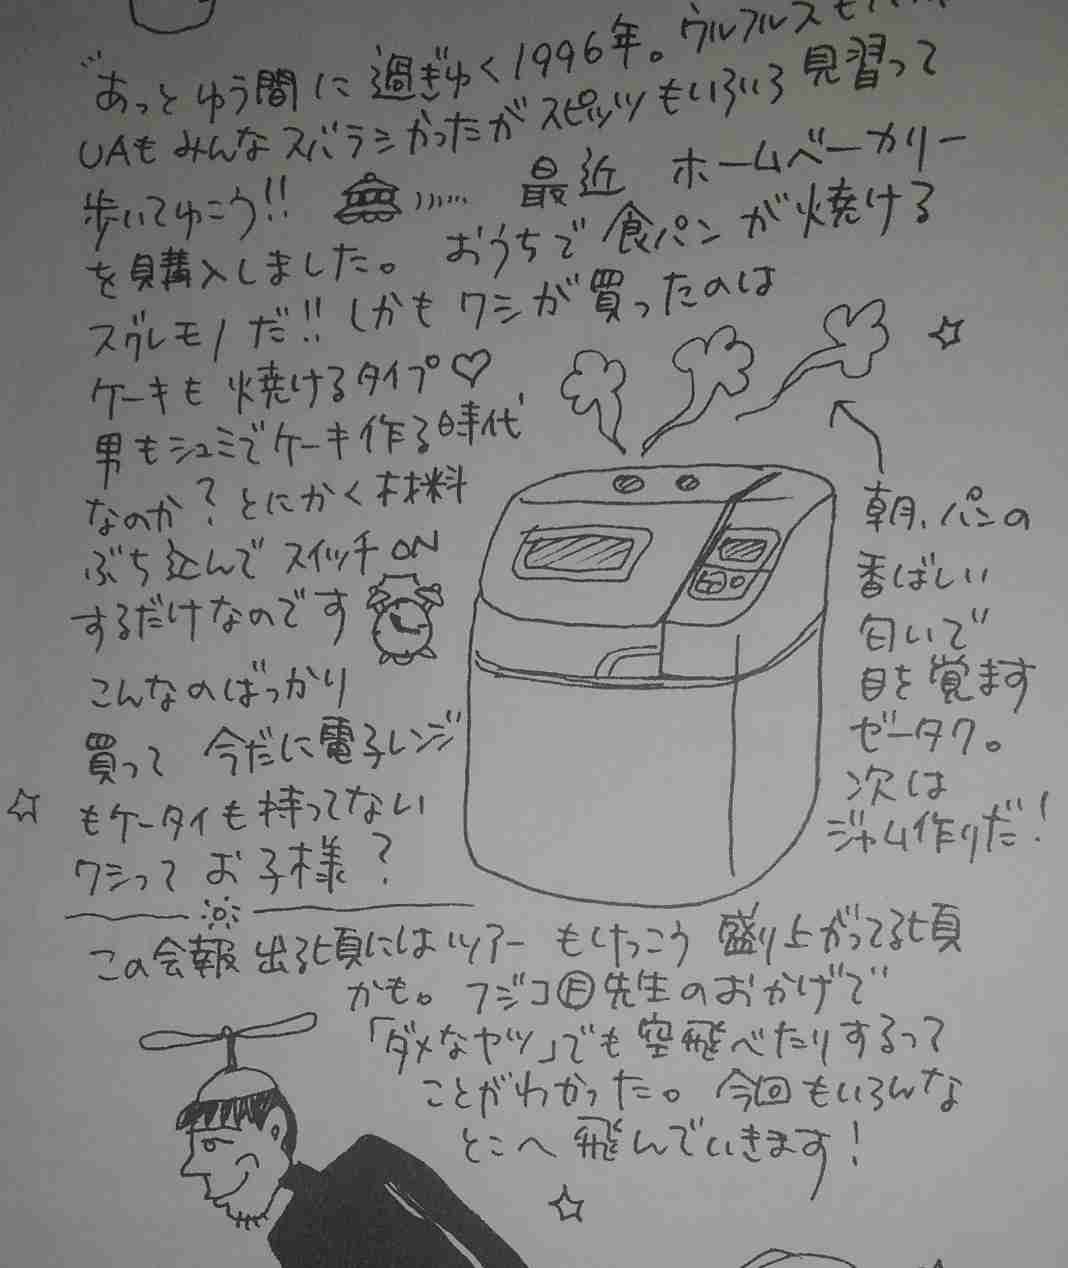 あっとゆう間に過ぎゆく1996年。ウルフルズも
UAもみんなスバラシかったがスピッツもいろいろ見習って
歩いてゆこう!! 最近 ホームベーカリー
を購入しました。 おうちで食パンが焼ける
スグレモノだ!! しかもワシが買ったのは
ケーキも焼けるタイプ♡
男もシュミでケーキ作る時代
なのか?とにかく材料
ぶち込んでスイッチON
するだけなのです
こんなのばっかり
買って 今だに電子レンジ
もケータイも持ってない
ワシってお子様?
朝、パンの
香ばしい
匂いで
目を覚ます
ゼータク。
次は
ジャム作りだ!
この会報出る頃にはツアーもけっこう盛り上がってる頃
かも。フジコⒻ先生のおかげで
「ダメなヤツ」でも空飛べたりするって
ことがわかった。今回もいろんな
とこへ飛んでいきます!